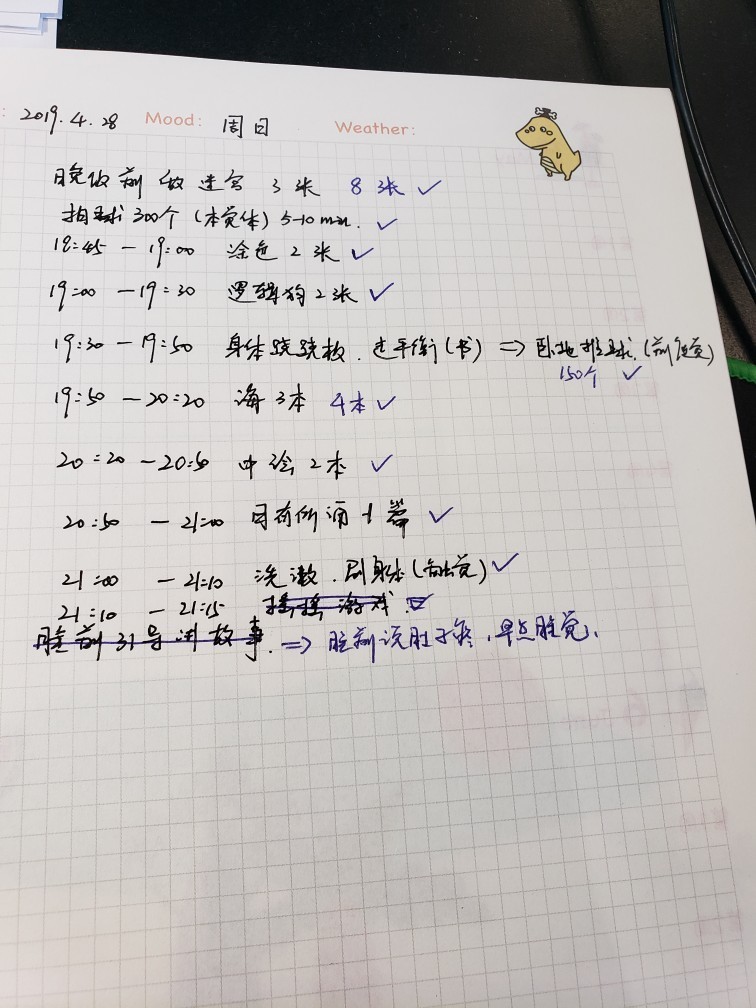 : 2019.4.28 Mood: 周日 Weather:
晚饭前 做 迷宫 3张 8张 ✓
拍球300个(本觉体)5-10min. ✓
18:45 - 19:00 涂色2张 ✓
19:00 - 19:30 逻辑狗2张 ✓
19:30 - 19:50 身体跷跷板. 走平衡(书) ⇒ 卧地推球.(前庭觉)
150个 ✓
19:50 - 20:20 海3本 4本 ✓
20:20 - 20:50 中绘2本 ✓
20:50 - 21:00 日有所诵1篇 ✓
21:00 - 21:10 洗漱. 刷身体(触觉) ✓
21:10 - 21:15 游戏.
睡前31号讲故事. ⇒ 睡前说肚子疼,早点睡觉.